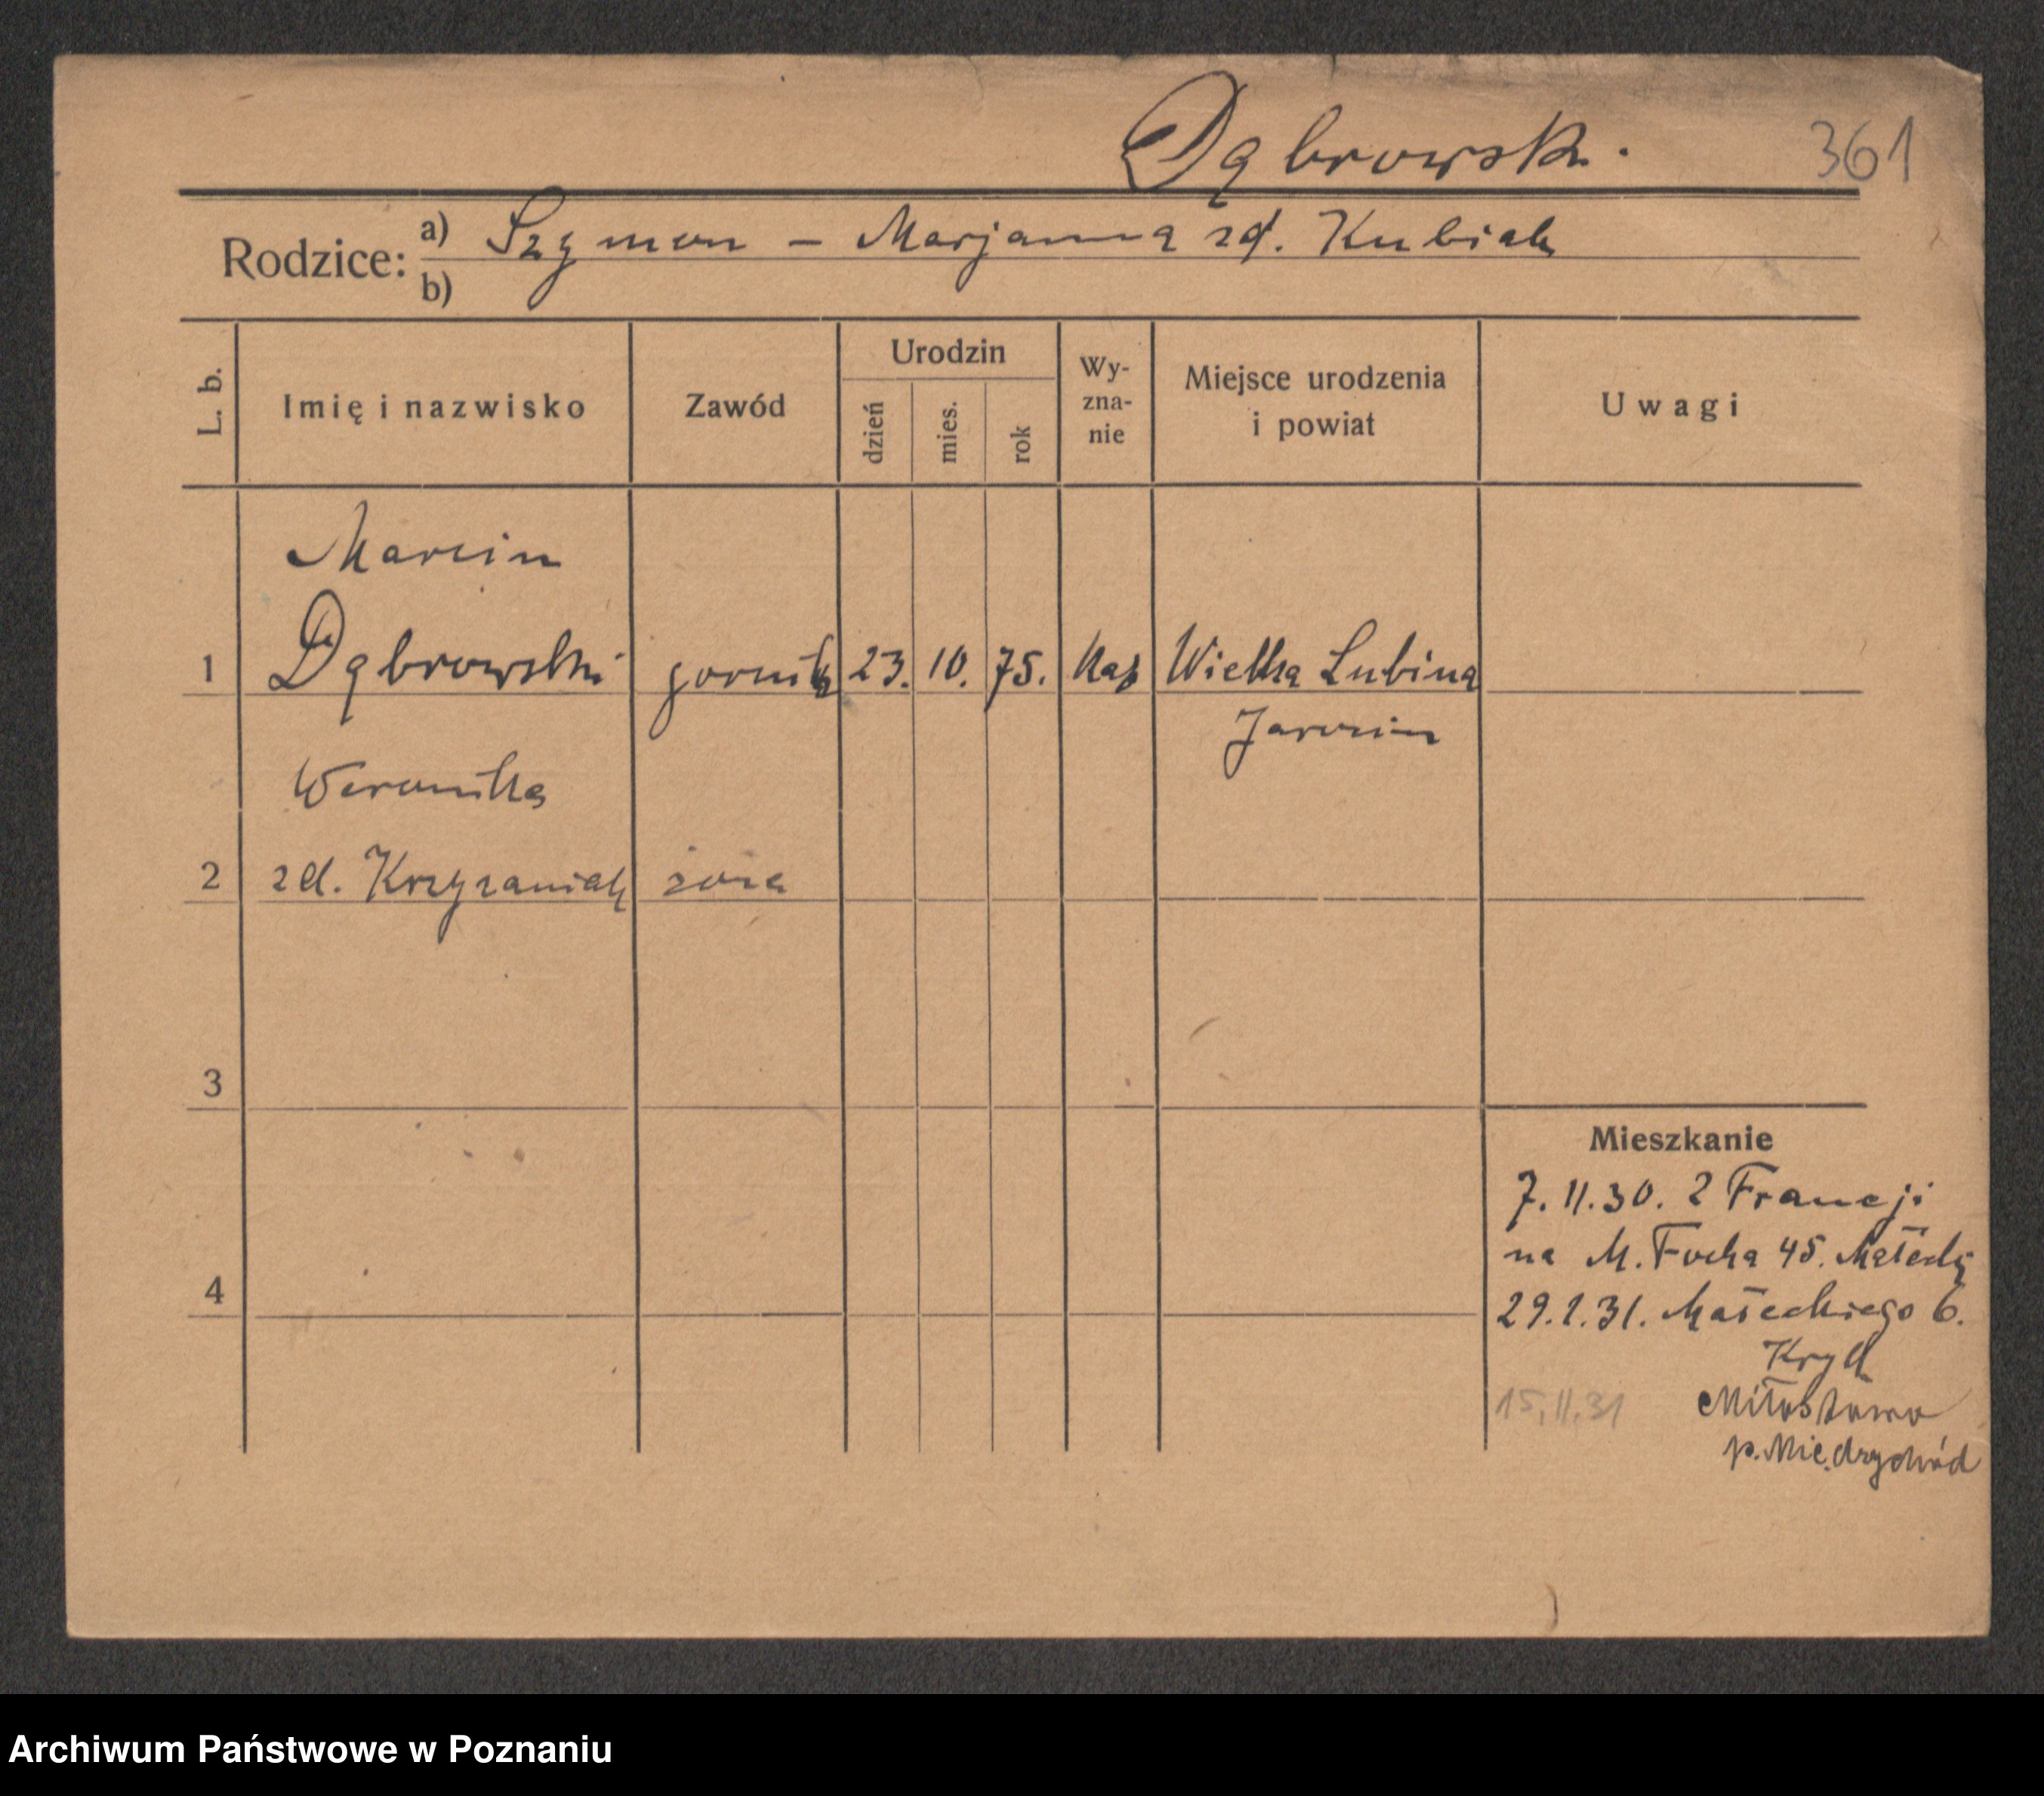 Dąbrowski.
361
Rodzice: a) Szymon – Marjanna zd. Kubiak
b)
L. b.
Imię i nazwisko
Zawód
Urodzin
dzień
mies.
rok
Wy-
zna-
nie
Miejsce urodzenia
i powiat
Uwagi
Marcin
1 Dąbrowski gornik 23. 10. 75. Kat Wielka Lubina
Jarocin
Weronika
2 zd. Krzyzaniak żona
3
4
Mieszkanie
7. 11. 30. z Francji
na M. Focha 45.
29. 1. 31. Małeckiego 6.
15, 11. 31 Miłostowo
p. Międzychód
Archiwum Państwowe w Poznaniu